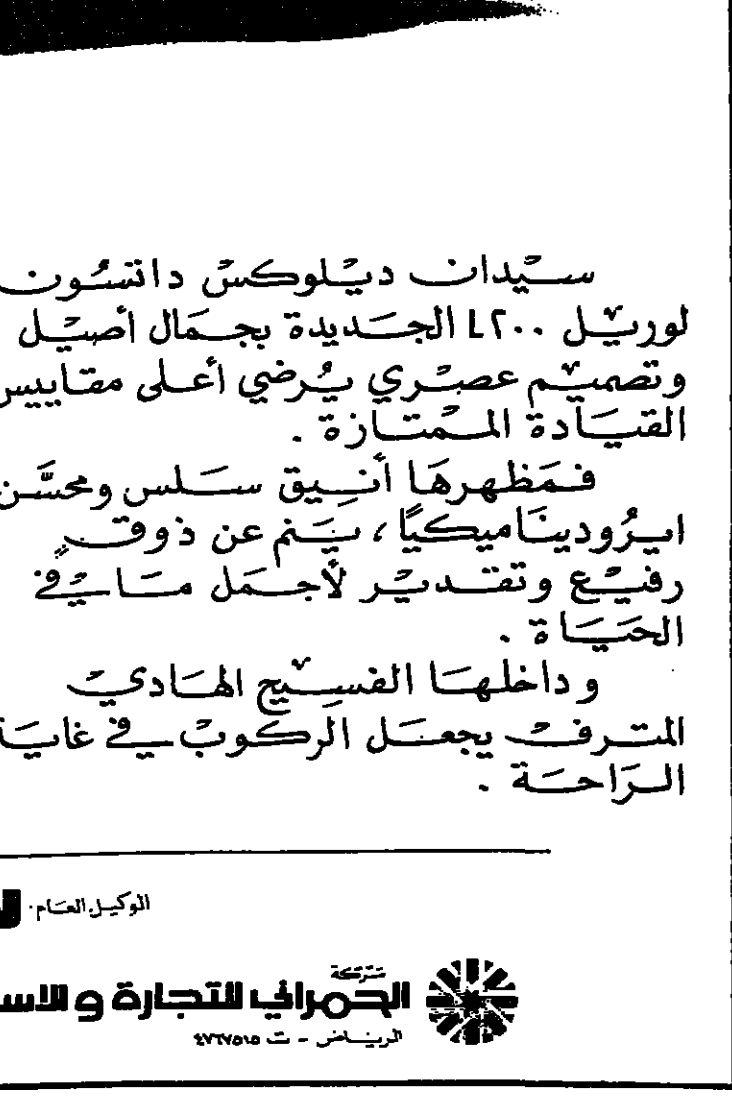 سيدان ديلوكس داتسون
لوريل L٢٠٠ الجديدة بجمال أصيل
وتصميم عصري يُرضي أعلى مقاييس
القيادة الممتازة .
فمَظهرهَا أنيق سلس ومحسَّن
ايرُوديناميكيًا، ينم عن ذوقٍ
رفيع وتقدير لأجمل مَا في
الحيَاة .
وداخلها الفسيح الهادي
المترف يجعل الركوب في غاية
الرَاحة .
الوكيل العام:
شركة
الحمراني للتجارة و الاس
الرياض - ت ٤٧٦٧٥١٥